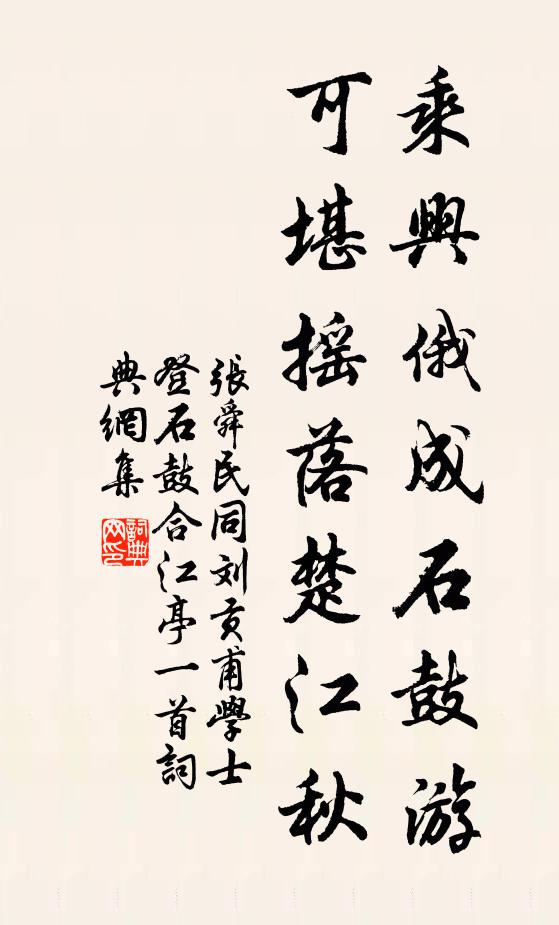 乘興俄成石鼓游
可堪摇落楚江秋
張舜民同刘贡甫學士
登石鼓合江亭一首詞
典網集
詞典
网印